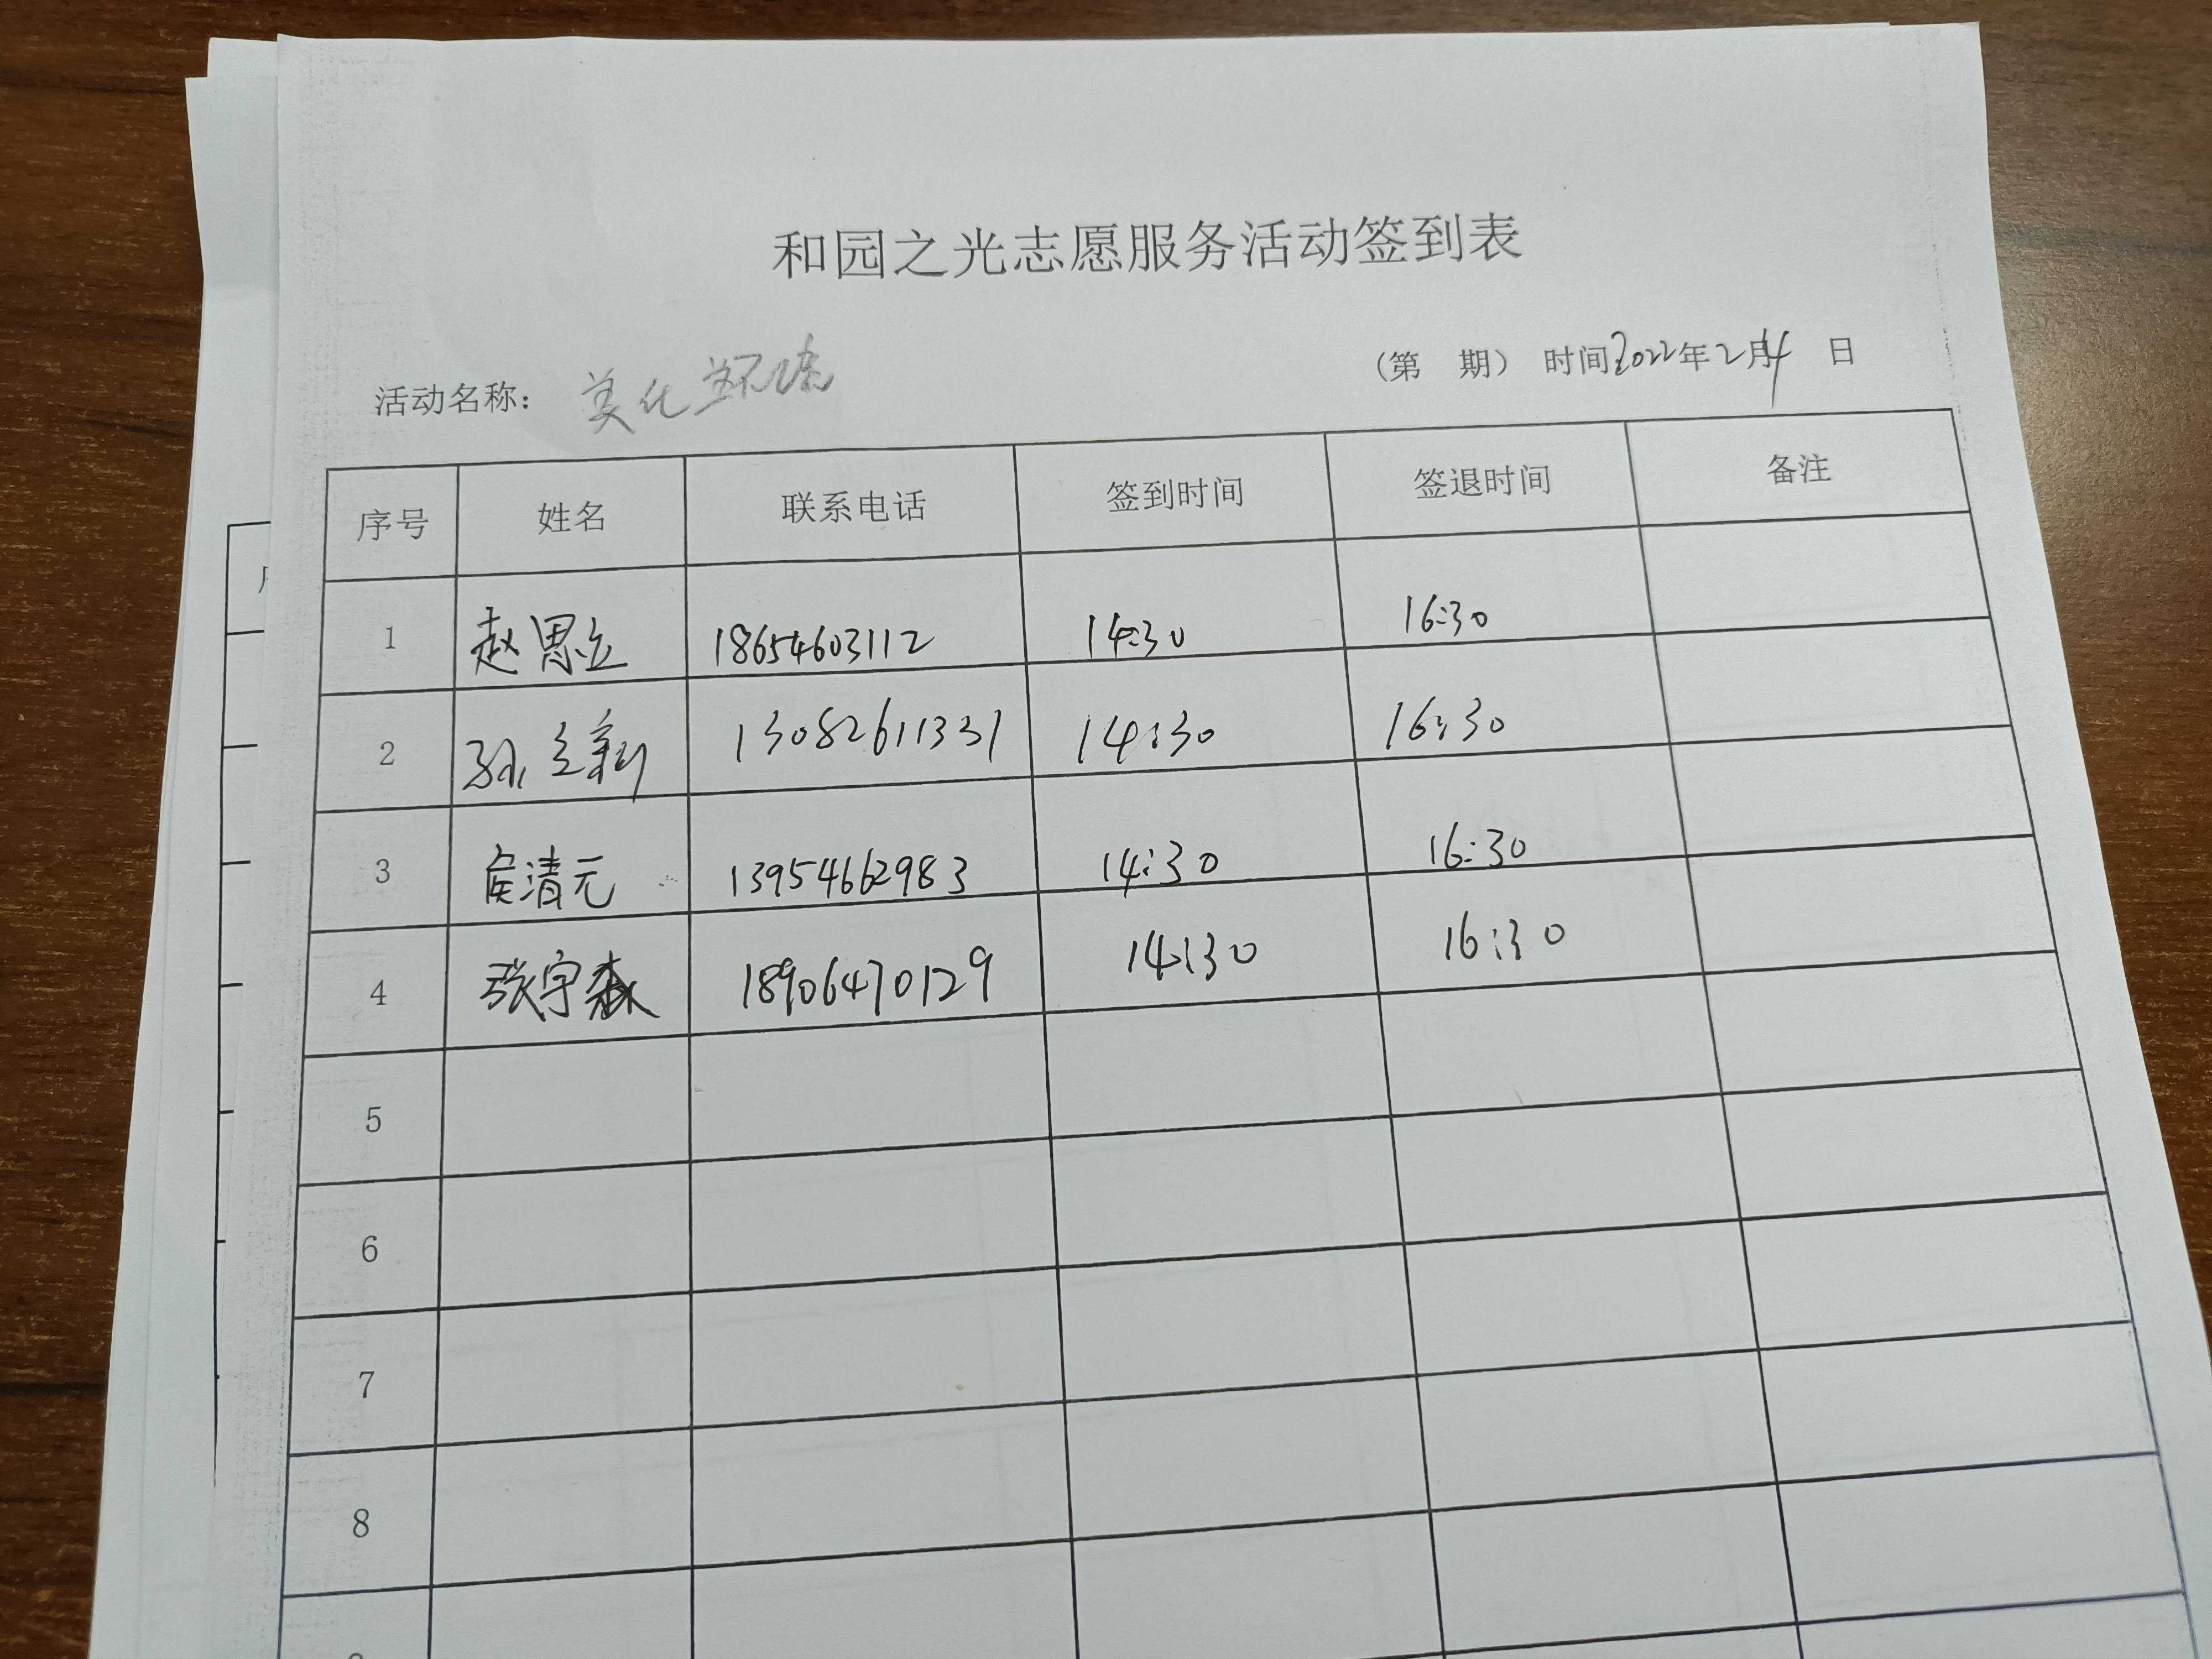 和园之光志愿服务活动签到表
活动名称: 美化环境 (第 期) 时间2022年2月4日
序号 姓名 联系电话 签到时间 签退时间 备注
1 赵思立 18654603112 14:30 16:30
2 孙立新 13082611331 14:30 16:30
3 侯清元 13954662983 14:30 16:30
4 张宇森 18906470129 14:30 16:30
5
6
7
8